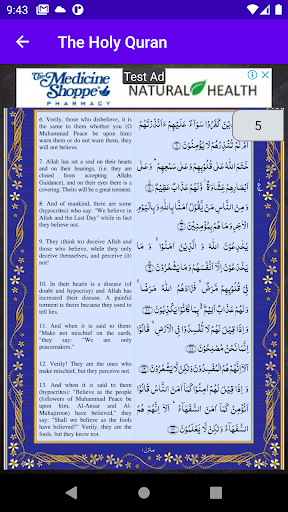 9:43
The Holy Quran
The Medicine
Shoppe
PHARMACY
Test Ad
NATURAL HEALTH
5
6. Verily, those who disbelieve, it is
the same to them whether you (O
Muhammad Peace be upon him)
warn them or do not warn them, they
will not believe.
7. Allah has set a seal on their hearts
and on their hearings, (i.e. they are
closed from accepting Allahs
Guidance), and on their eyes there is a
covering. Theirs will be a great torment.
8. And of mankind, there are some
(hypocrites) who say: "We believe in
Allah and the Last Day" while in fact
they believe not.
9. They (think to) deceive Allah and
those who believe, while they only
deceive themselves, and perceive (it)
not!
10. In their hearts is a disease (of
doubt and hypocrisy) and Allah has
increased their disease. A painful
torment is theirs because they used to
tell lies.
11. And when it is said to them:
"Make not mischief on the earth,
"they say: "We are only
peacemakers."
12. Verily! They are the ones who
make mischief, but they perceive not.
13. And when it is said to them
(hypocrites): "Believe as the people
(followers of Muhammad Peace be
upon him, Al-Ansar and Al-
Muhajiroon) have believed," they
say: "Shall we believe as the fools
have believed?" Verily, they are the
fools, but they know not.
ءَاَنْذَرْتَهُمْ
اَمْ لَمْ تُنْذِرْهُمْ لَا يُؤْمِنُوْنَ ۝۶
خَتَمَ اللّٰهُ عَلٰى قُلُوْبِهِمْ وَعَلٰى سَمْعِهِمْ ۚ وَعَلٰٓى
اَبْصَارِهِمْ غِشَاوَةٌ ۖ وَّلَهُمْ عَذَابٌ عَظِيْمٌ ۝۷
وَمِنَ النَّاسِ مَنْ يَّقُوْلُ اٰمَنَّا بِاللّٰهِ وَبِالْيَوْمِ
الْاٰخِرِ وَمَا هُمْ بِمُؤْمِنِيْنَ ۝۸
يُخٰدِعُوْنَ اللّٰهَ وَ الَّذِيْنَ اٰمَنُوْا ۚ وَ مَا
يَخْدَعُوْنَ اِلَّآ اَنْفُسَهُمْ وَمَا يَشْعُرُوْنَ ۝۹
فِيْ قُلُوْبِهِمْ مَّرَضٌ ۙ فَزَادَهُمُ اللّٰهُ مَرَضًا ۚ
وَلَهُمْ عَذَابٌ اَلِيْمٌۢ بِمَا كَانُوْا يَكْذِبُوْنَ ۝۱۰
وَ اِذَا قِيْلَ لَهُمْ لَا تُفْسِدُوْا فِي الْاَرْضِ ۙ قَالُوْٓا
اِنَّمَا نَحْنُ مُصْلِحُوْنَ ۝۱۱
اَلَآ اِنَّهُمْ هُمُ الْمُفْسِدُوْنَ وَلٰكِنْ لَّا يَشْعُرُوْنَ ۝۱۲
وَ اِذَا قِيْلَ لَهُمْ اٰمِنُوْا كَمَآ اٰمَنَ النَّاسُ قَالُوْٓا
اَنُؤْمِنُ كَمَآ اٰمَنَ السُّفَهَآءُ ۗ اَلَآ اِنَّهُمْ هُمُ
السُّفَهَآءُ وَلٰكِنْ لَّا يَعْلَمُوْنَ ۝۱۳